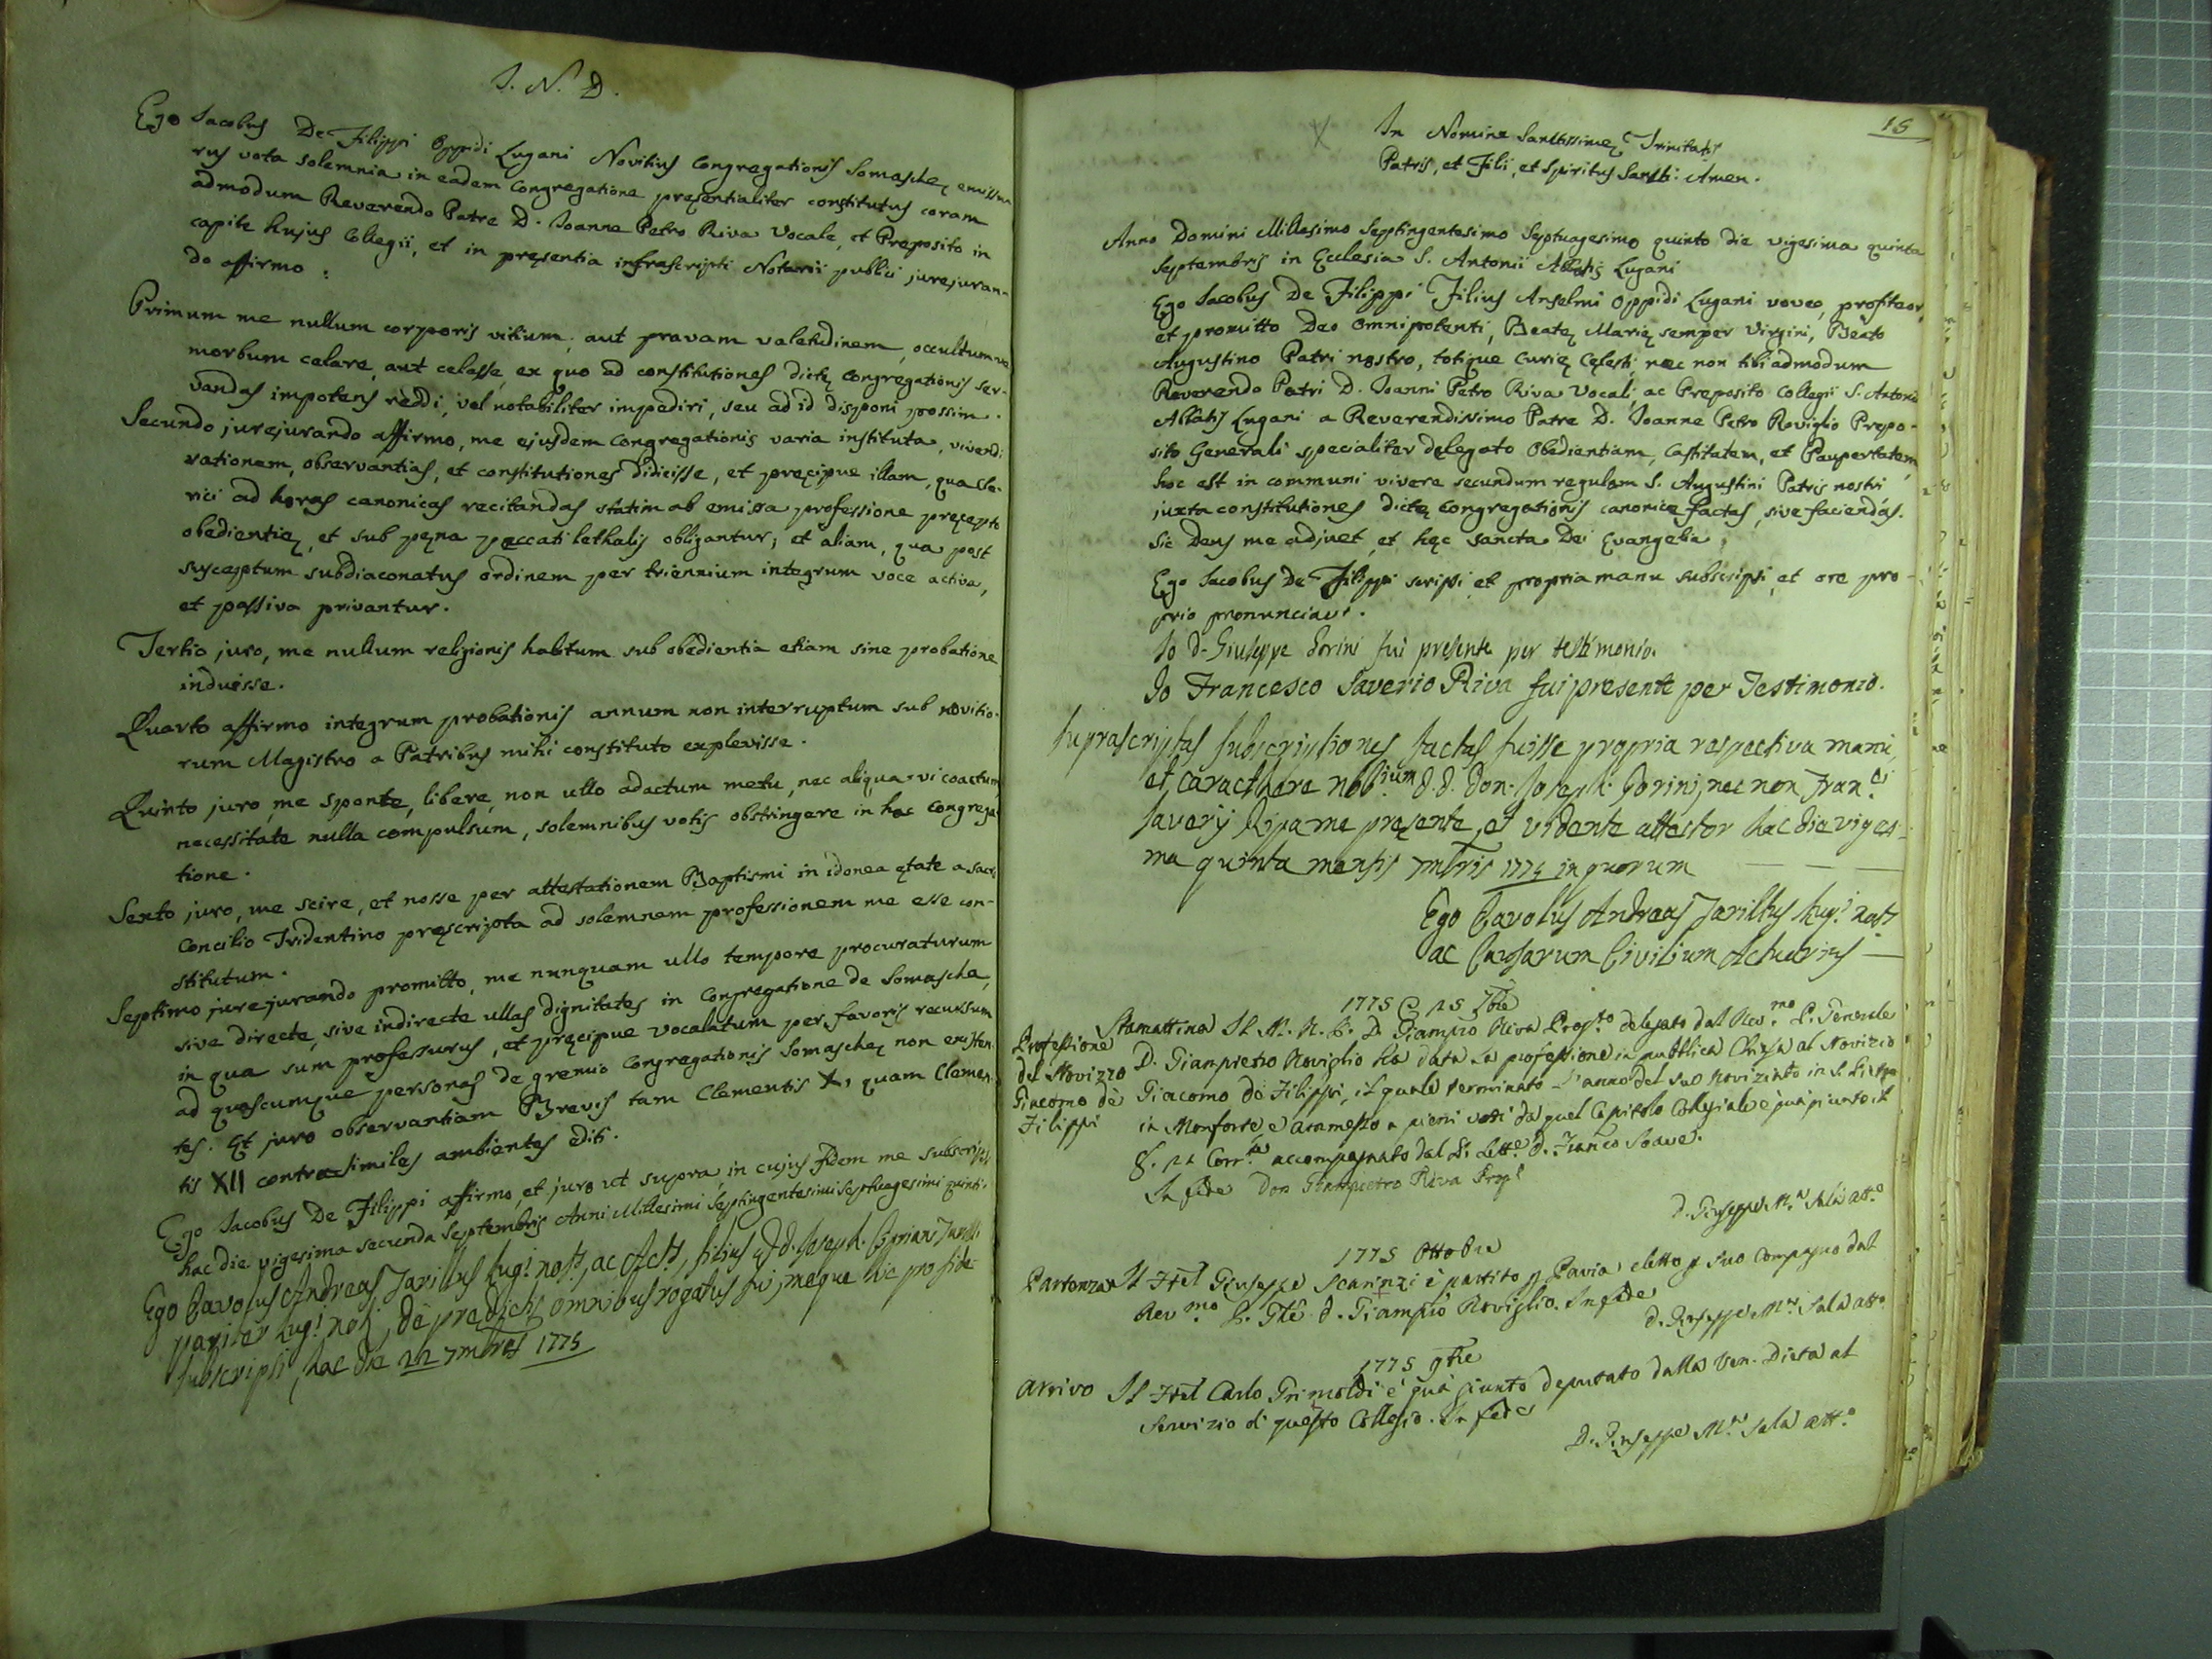 I. N. D.
Ego Jacobus De Filippi Oppidi Lugani Novitius Congregationis Somaschę emissu-
rus vota solemnia in eadem Congregatione pręsentialiter constitutus coram
admodum Reverendo Patre D. Joanne Petro Riva Vocale, et Preposito in
capite hujus Collegii, et in pręsentia infrascripti Notarii publici jurejuran-
do affirmo:
Primum me nullum corporis vitium, aut pravam valetudinem, occultumve
morbum celare, aut celasse, ex quo ad constitutiones dictę Congregationis ser-
vandas impotens reddi, vel notabiliter impediri, seu ad id disponi possim.
Secundo jurejurando affirmo, me ejusdem Congregationis varia instituta, vivendi
rationem, observantias, et constitutiones didicisse, et pręcipue illam, qua Cle-
rici ad horas canonicas recitandas statim ab emissa professione pręcepto
obedientię, et sub pęna peccati lethalis obligantur; et aliam, qua post
susceptum subdiaconatus ordinem per triennium integrum voce activa,
et passiva privantur.
Tertio juro, me nullum religionis habitum sub obedientia etiam sine probatione
induisse.
Quarto affirmo integrum probationis annum non interruptum sub novitio-
rum Magistro a Patribus mihi constituto explevisse.
Quinto juro, me sponte, libere, non ullo adactum metu, nec aliqua vi coactum
necessitate nulla compulsum, solemnibus votis obstringere in hac Congrega-
tione.
Sexto juro, me scire, et nosse per attestationem Baptismi in idonea ętate a sacro
Concilio Tridentino pręscripta ad solemnem professionem me esse con-
stitutum.
Septimo jurejurando promitto, me nunquam ullo tempore procuraturum
sive directe, sive indirecte ullas dignitates in Congregatione de Somascha,
in qua sum professurus, et pręcipue vocalatum per favoris recursum
ad quascumque personas de gremio Congregationis Somaschę non existen-
tes. Et juro observantiam Brevis tam Clementis X, quam Clemen-
tis XII contra similes ambientes editi.
Ego Jacobus De Filippi affirmo, et juro ut supra, in cujus fidem me subscripsi
hac die vigesima secunda Septembris Anni Millesimi Septingentesimi Septuagesimi quinti.
Ego Carolus Andreas Lug.i not.s, ac Act.s, filius D. Joseph. Cipriani
pariter Lug.i not.i, de prędictis omnibus rogatus fui, meque hic pro fide
subscripsi, hac die 22 7mbris 1775
15
In Nomine Sanctissimę Trinitatis
Patris, et Filii, et Spiritus Sancti. Amen.
Anno Domini Millesimo Septingentesimo Septuagesimo quinto die vigesima quinta
Septembris in Ecclesia S. Antonii Abbatis Lugani
Ego Jacobus De Filippi Filius Anselmi Oppidi Lugani voveo, profiteor,
et promitto Deo Omnipotenti, Beatę Marię semper Virgini, Beato
Augustino Patri nostro, totique Curię Cęlesti, nec non tibi admodum
Reverendo Patri D. Joanni Petro Riva Vocali, ac Preposito Collegii S. Antonii
Abbatis Lugani a Reverendissimo Patre D. Joanne Petro Roviglio Prepo-
sito Generali specialiter delegato Obedientiam, Castitatem, et Paupertatem,
hoc est in communi vivere secundum regulam S. Augustini Patris nostri
juxta constitutiones dictę Congregationis canonice factas, sive faciendas.
Sic Deus me adjuvet, et hęc Sancta Dei Evangelia.
Ego Jacobus De Filippi scripsi, et propria manu subscripsi, et ore pro-
prio pronunciavi.
Io D. Giuseppe Gorini fui presente per testimonio.
Io Francesco Saverio Riva fui presente per Testimonio.
Suprascriptas subscriptiones factas fuisse propria respectiva manu,
et caracthere D.D. Don Joseph Gorini, nec non Fran.ci
Saverij Ripa me pręsente, et vidente attestor hac die viges-
ma quinta mensis 7mbris 1775 in quorum
Ego Carolus Andreas Lug.i not.s
ac Causarum Civilium Actuarius
1775 25 7bre
Professione
del Novizzo
Giacomo de
Filippi
Stamattina Il M. R. P. D. Giampro Riva Prop.to delegato dal Rev.mo P. Generale
D. Giampietro Roviglio ha data la professione in pubblica Chiesa al Novizio
Giacomo de Filippi, il quale terminato l'anno del suo Noviziato in S. Pietro
in Monforte, e ammesso a pieni voti da quel Capitolo Collegiale è qua giunto il
g. 21 Corr.te accompagnato dal P. Lett.e D. Franco Soave.
In fede Don Giampietro Riva Prop.o
D. Giuseppe M.a Sala att.o
1775 Ottobre
Partenza Il Frel Giuseppe Scarinzi è partito p Pavia eletto p suo Compagno dal
Rev.mo P. Gle D. Giampro Roviglio. In fede
D. Giuseppe M.a Sala att.o
1775 9bre
Arrivo Il Frel Carlo Grimoldi è quà giunto deputato dalla Ven. Dieta al
Servizio di questo Collegio. In fede
D. Giuseppe M.a Sala att.o